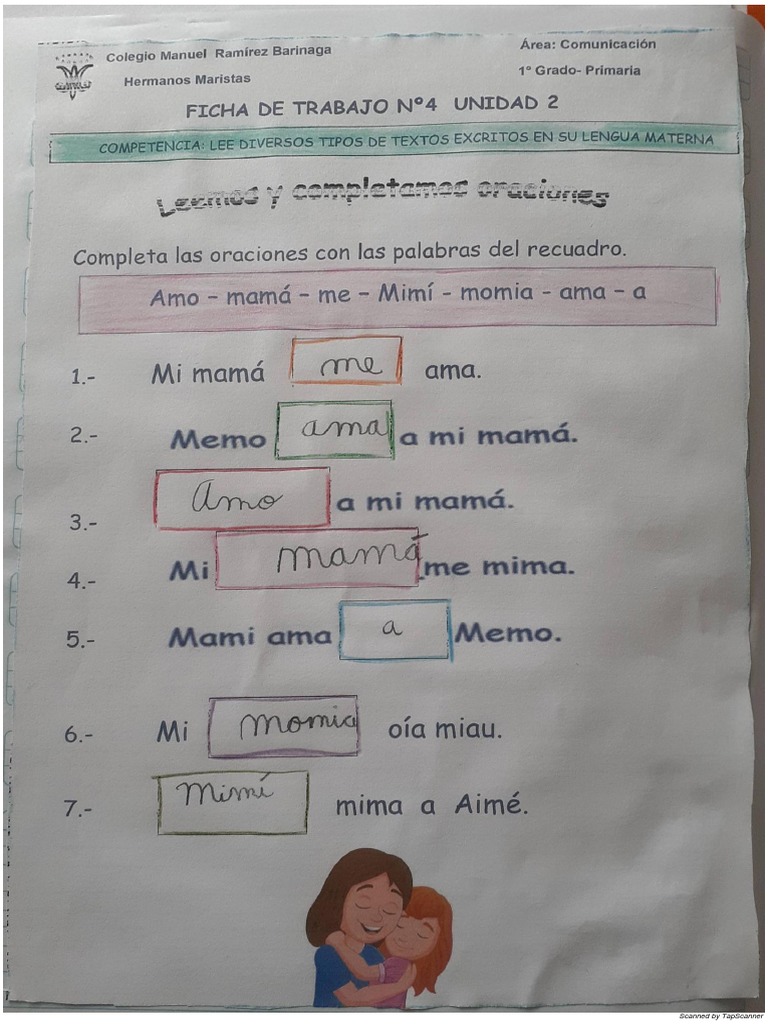 Colegio Manuel Ramírez Barinaga
Área: Comunicación
Hermanos Maristas
1° Grado- Primaria
FICHA DE TRABAJO Nº4 UNIDAD 2
COMPETENCIA: LEE DIVERSOS TIPOS DE TEXTOS EXCRITOS EN SU LENGUA MATERNA
Leemos y completamos oraciones
Completa las oraciones con las palabras del recuadro.
Amo – mamá – me – Mimí - momia - ama – a
1.- Mi mamá me ama.
2.- Memo ama a mi mamá.
3.- Amo a mi mamá.
4.- Mi mamá me mima.
5.- Mami ama a Memo.
6.- Mi momia oía miau.
7.- Mimí mima a Aimé.
Scanned by TapScanner